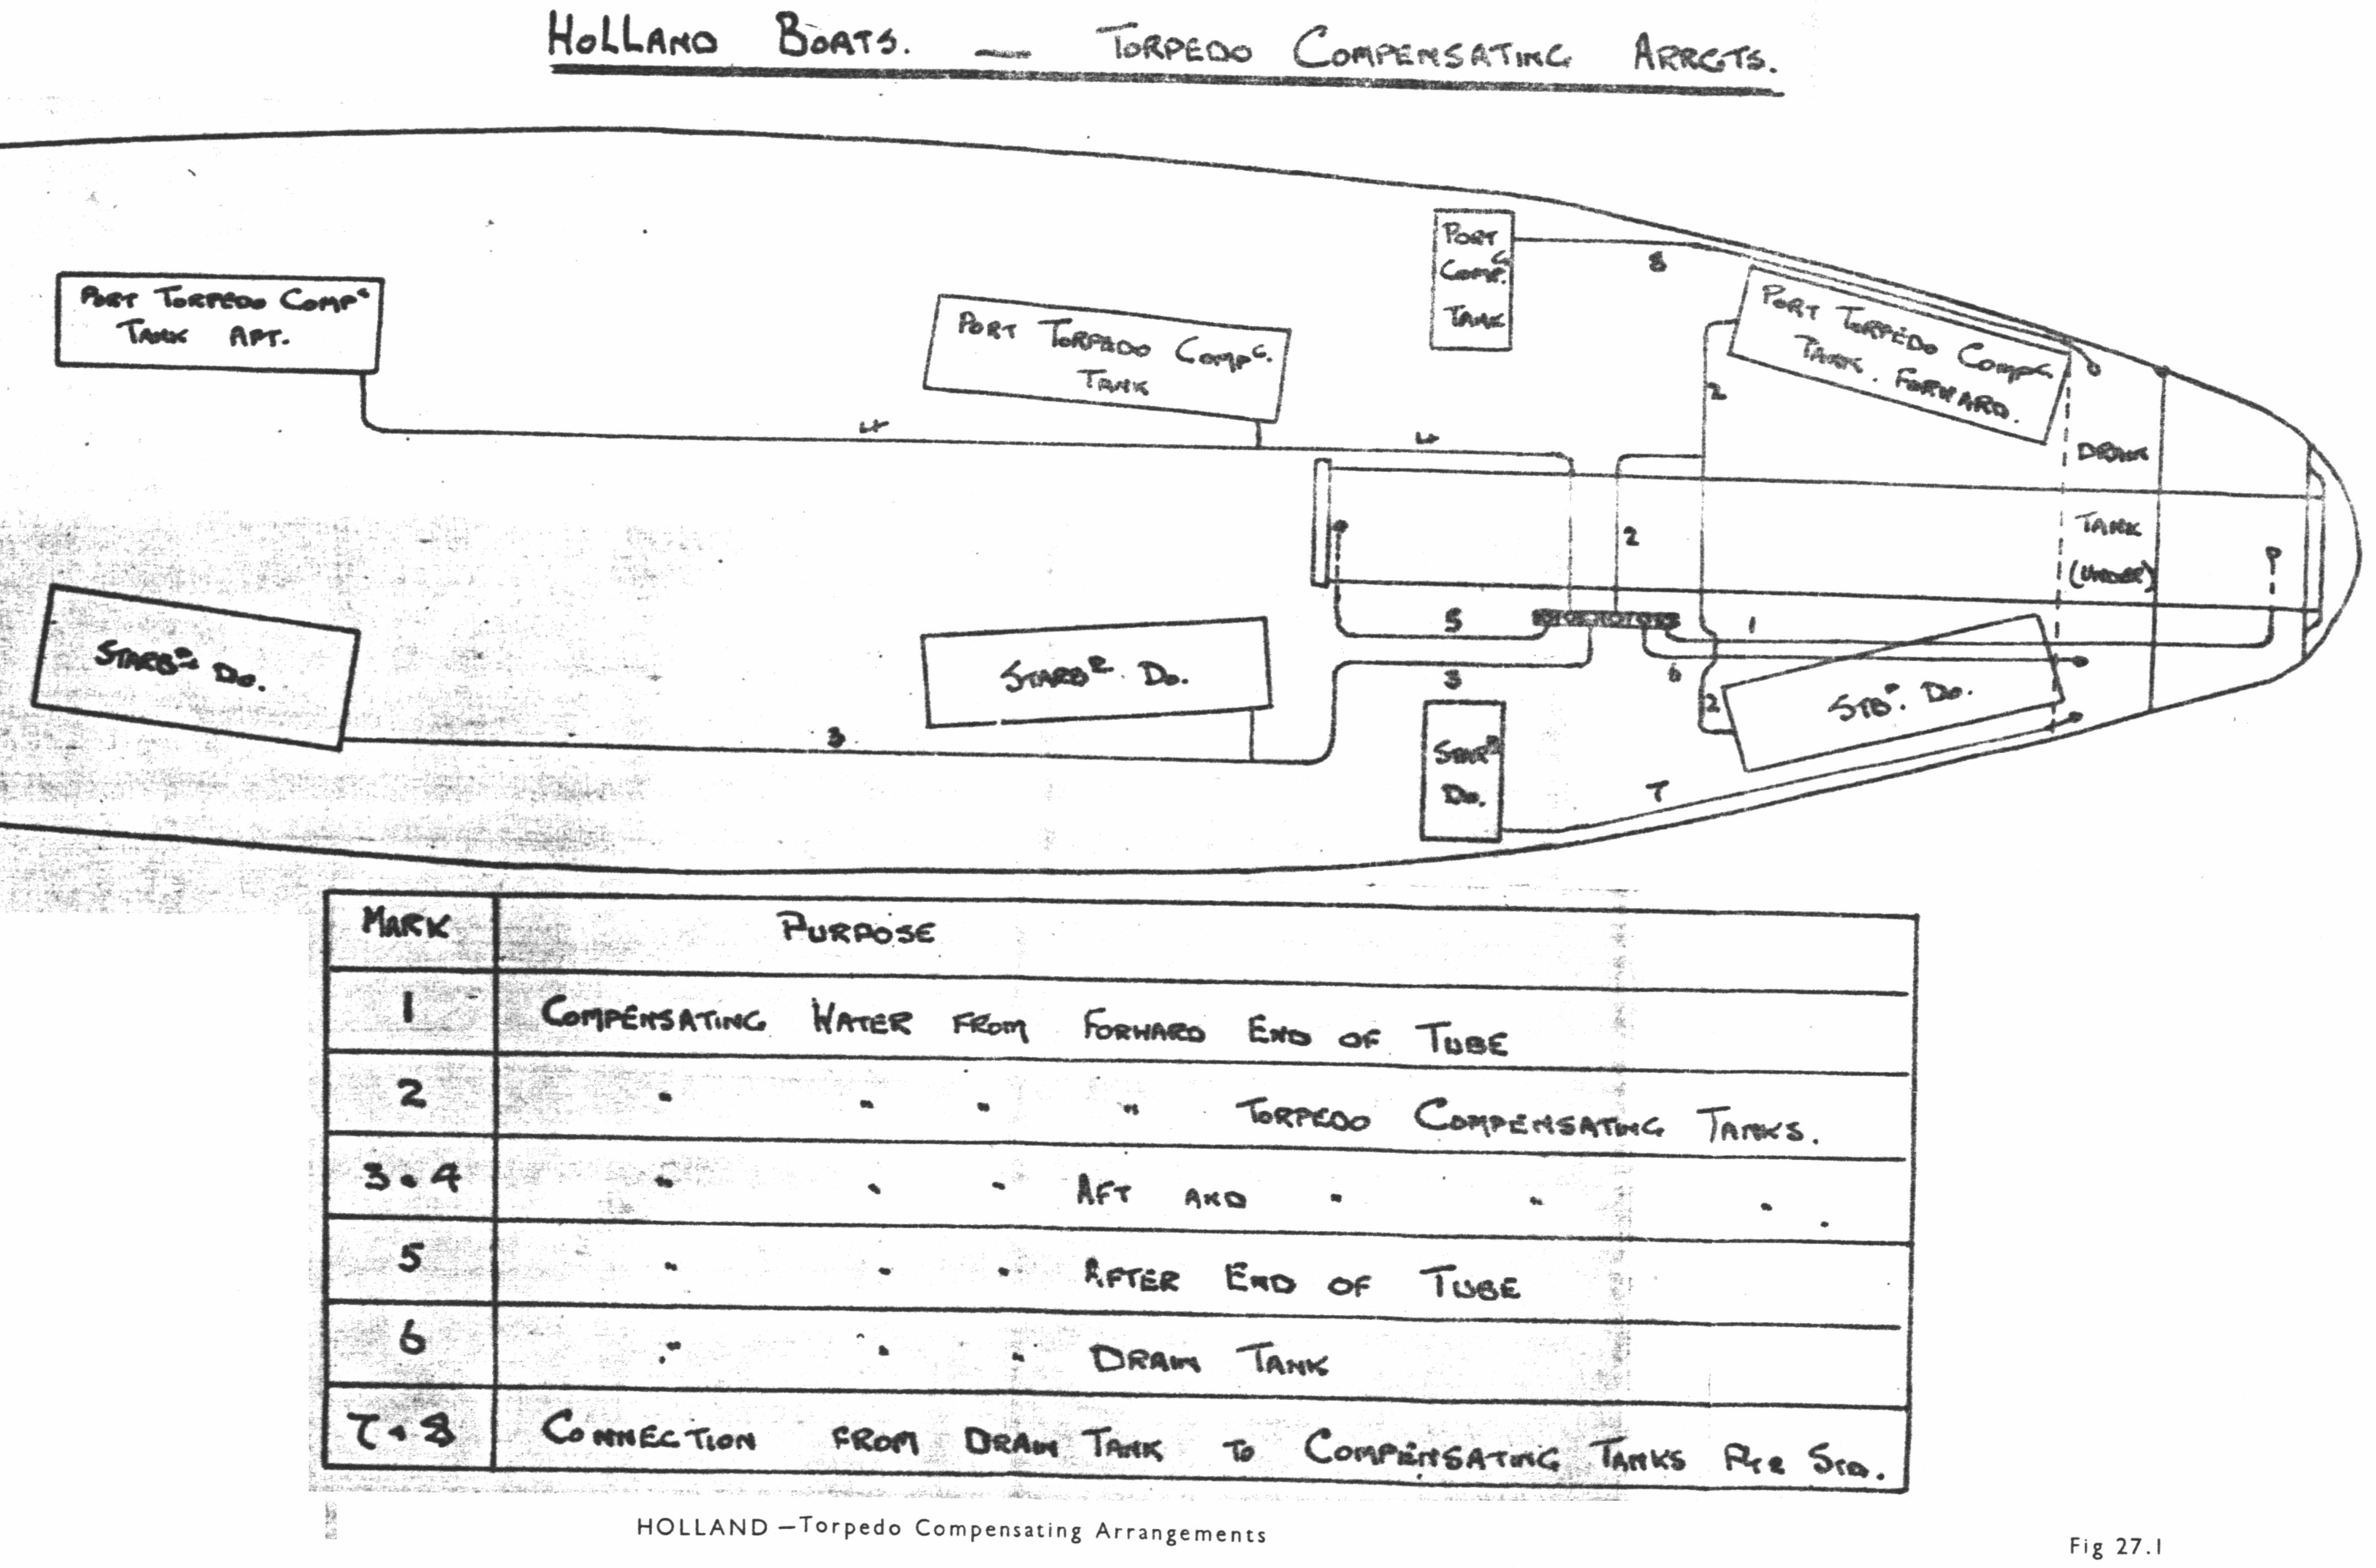 HOLLAND BOATS. — TORPEDO COMPENSATING ARRGTS.
PORT TORPEDO COMPG
TANK AFT.
PORT TORPEDO COMPG.
TANK
PORT
COMPG.
TANK
8
PORT TORPEDO COMPG.
TANK. FORWARD.
2
4
4
DRAIN
TANK
(UNDER)
2
5
1
3
6
2
STARBD Do.
STARBD. Do.
STARBD
Do.
STBD. Do.
3
7
MARK PURPOSE
1 COMPENSATING WATER FROM FORWARD END OF TUBE
2 " " " " TORPEDO COMPENSATING TANKS.
3 & 4 " " " AFT AND " " " .
5 " " " AFTER END OF TUBE
6 " " " DRAIN TANK
7 & 8 CONNECTION FROM DRAIN TANK TO COMPENSATING TANKS P & S
HOLLAND —Torpedo Compensating Arrangements
Fig 27.1